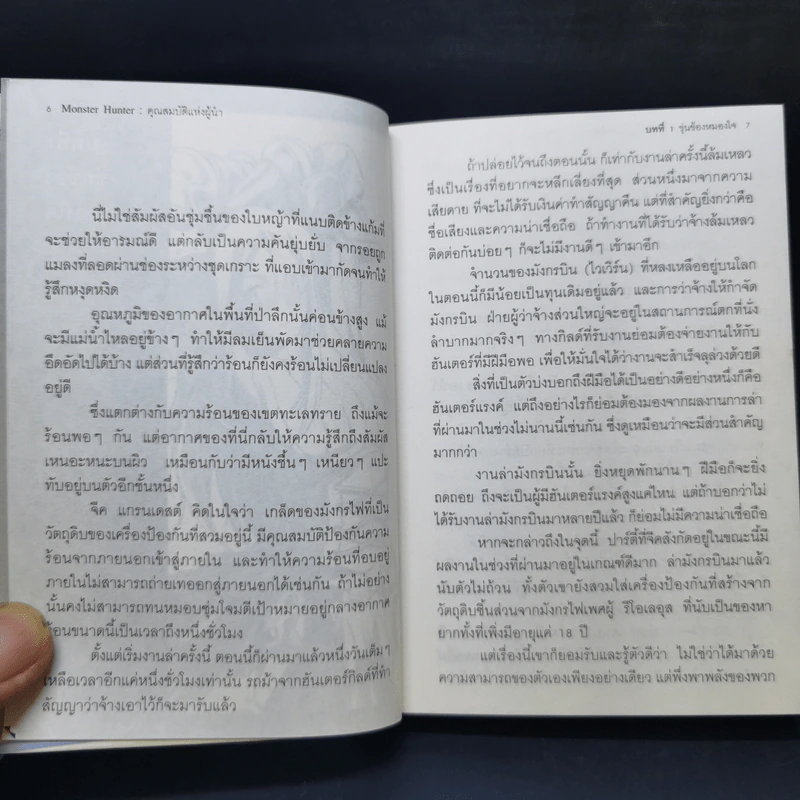 6 Monster Hunter : คุณสมบัติแห่งผู้นำ
นี่ไม่ใช่สัมผัสอันชุ่มชื้นของใบหญ้าที่แนบติดข้างแก้มที่
จะช่วยให้อารมณ์ดี แต่กลับเป็นความคันยุบยับ จากรอยถูก
แมลงที่ลอดผ่านช่องระหว่างชุดเกราะ ที่แอบเข้ามากัดจนทำให้
รู้สึกหงุดหงิด
อุณหภูมิของอากาศในพื้นที่ป่าลึกนั้นค่อนข้างสูง แม้
จะมีแม่น้ำไหลอยู่ข้างๆ ทำให้มีลมเย็นพัดมาช่วยคลายความ
อึดอัดไปได้บ้าง แต่ส่วนที่รู้สึกว่าร้อนก็ยังคงร้อนไม่เปลี่ยนแปลง
อยู่ดี
ซึ่งแตกต่างกับความร้อนของเขตทะเลทราย ถึงแม้จะ
ร้อนพอๆ กัน แต่อากาศของที่นี่กลับให้ความรู้สึกถึงสัมผัส
เหนอะหนะบนผิว เหมือนกับว่ามีหนังชื้นๆ เหนียวๆ แปะ
ทับอยู่บนตัวอีกชั้นหนึ่ง
จีค แกรนเดสต์ คิดในใจว่า เกล็ดของมังกรไฟที่เป็น
วัตถุดิบของเครื่องป้องกันที่สวมอยู่นี้ มีคุณสมบัติป้องกันความ
ร้อนจากภายนอกเข้าสู่ภายใน และทำให้ความร้อนที่อบอยู่
ภายในไม่สามารถถ่ายเทออกสู่ภายนอกได้เช่นกัน ถ้าไม่อย่าง
นั้นคงไม่สามารถทนหมอบซุ่มโจมตีเป้าหมายอยู่กลางอากาศ
ร้อนขนาดนี้เป็นเวลาถึงหนึ่งชั่วโมง
ตั้งแต่เริ่มงานล่าครั้งนี้ ตอนนี้ก็ผ่านมาแล้วหนึ่งวันเต็มๆ
เหลือเวลาอีกแค่หนึ่งชั่วโมงเท่านั้น รถม้าจากฮันเตอร์กิลด์ที่ทำ
สัญญาว่าจ้างเอาไว้ก็จะมารับแล้ว
บทที่ 1 ขุ่นข้องหมองใจ 7
ถ้าปล่อยไว้จนถึงตอนนั้น ก็เท่ากับงานล่าครั้งนี้ล้มเหลว
ซึ่งเป็นเรื่องที่อยากจะหลีกเลี่ยงที่สุด ส่วนหนึ่งมาจากความ
เสียดาย ที่จะไม่ได้รับเงินค่าทำสัญญาคืน แต่ที่สำคัญยิ่งกว่าคือ
ชื่อเสียงและความน่าเชื่อถือ ถ้าทำงานที่ได้รับว่าจ้างล้มเหลว
ติดต่อกันบ่อยๆ ก็จะไม่มีงานดีๆ เข้ามาอีก
จำนวนของมังกรบิน (ไวเวิร์น) ที่หลงเหลืออยู่บนโลก
ในตอนนี้ก็มีน้อยเป็นทุนเดิมอยู่แล้ว และการว่าจ้างให้กำจัด
มังกรบิน ฝ่ายผู้ว่าจ้างส่วนใหญ่จะอยู่ในสถานการณ์ตกที่นั่ง
ลำบากมากจริงๆ ทางกิลด์ที่รับงานย่อมต้องจ่ายงานให้กับ
ฮันเตอร์ที่มีฝีมือพอ เพื่อให้มั่นใจได้ว่างานจะสำเร็จลุล่วงด้วยดี
สิ่งที่เป็นตัวบ่งบอกถึงฝีมือได้เป็นอย่างดีอย่างหนึ่งก็คือ
ฮันเตอร์แรงค์ แต่ถึงอย่างไรก็ย่อมต้องมองจากผลงานการล่า
ที่ผ่านมาในช่วงไม่นานนี้เช่นกัน ซึ่งดูเหมือนว่าจะมีส่วนสำคัญ
มากกว่า
งานล่ามังกรบินนั้น ยิ่งหยุดพักนานๆ ฝีมือก็จะยิ่ง
ถดถอย ถึงจะเป็นผู้มีฮันเตอร์แรงค์สูงแค่ไหน แต่ถ้าบอกว่าไม่
ได้รับงานล่ามังกรบินมาหลายปีแล้ว ก็ย่อมไม่มีความน่าเชื่อถือ
หากจะกล่าวถึงในจุดนี้ ปาร์ตี้ที่จีคสังกัดอยู่ในขณะนี้มี
ผลงานในช่วงที่ผ่านมาอยู่ในเกณฑ์ดีมาก ล่ามังกรบินมาแล้ว
นับตัวไม่ถ้วน ทั้งตัวเขายังสวมใส่เครื่องป้องกันที่สร้างจาก
วัตถุดิบชิ้นส่วนจากมังกรไฟเพศผู้ รีโอเลอุส ที่นับเป็นของหา
ยากทั้งที่เพิ่งมีอายุแค่ 18 ปี
แต่เรื่องนี้เขาก็ยอมรับและรู้ตัวดีว่า ไม่ใช่ว่าได้มาด้วย
ความสามารถของตัวเองเพียงอย่างเดียว แต่พึ่งพาพลังของพวก